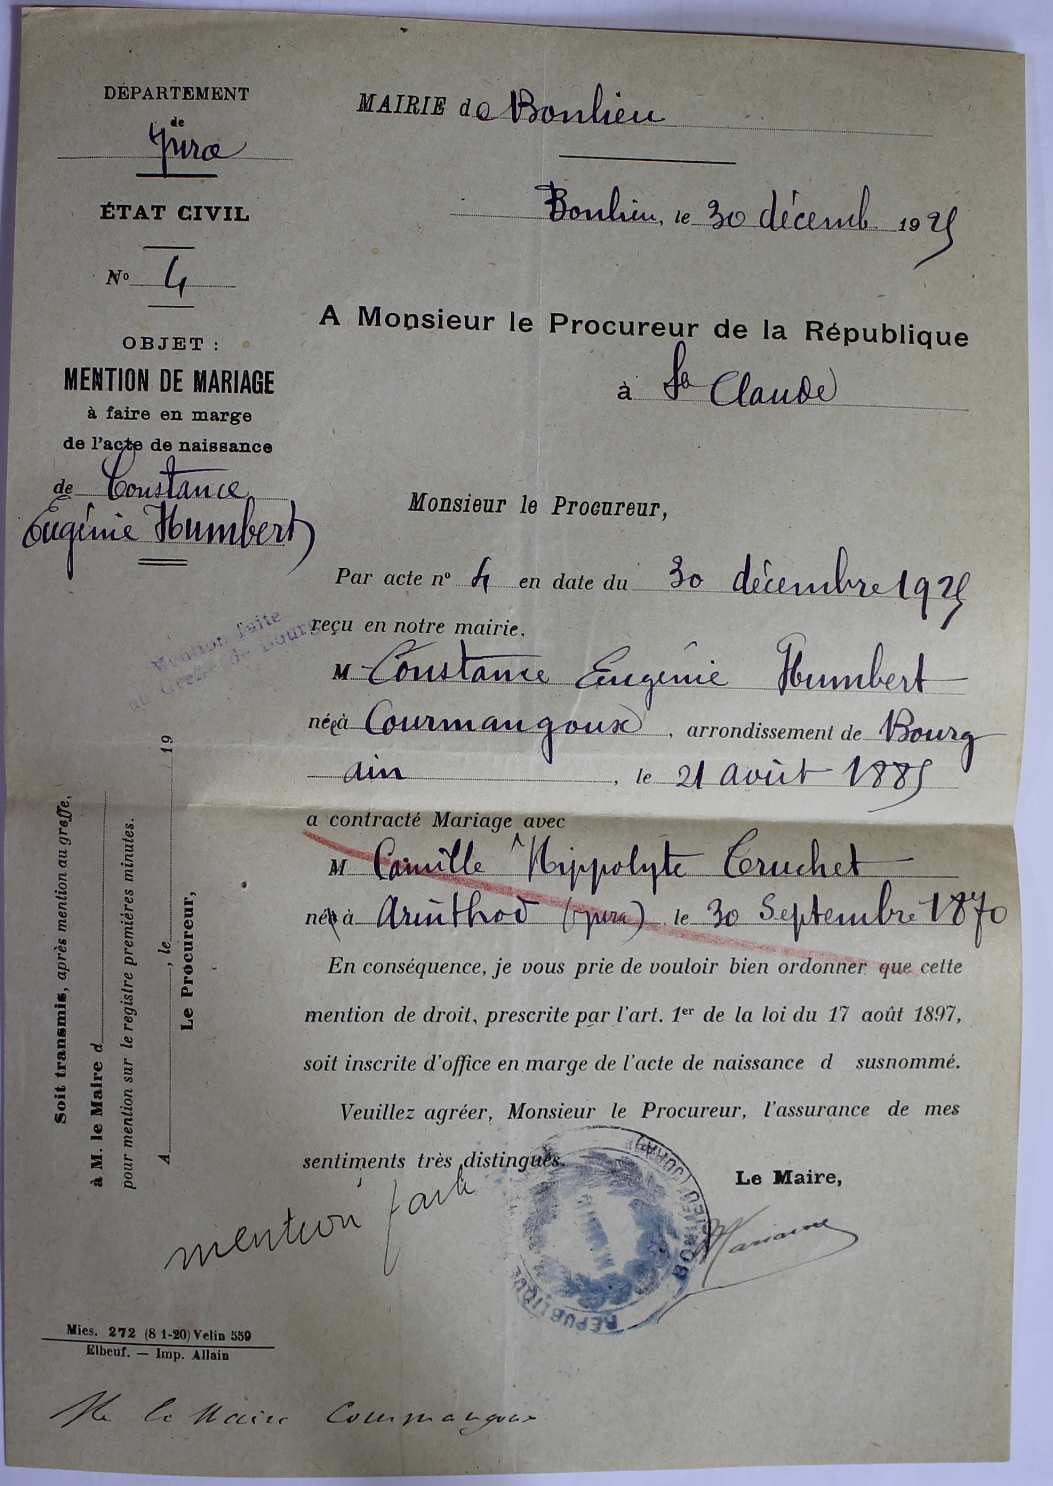 DÉPARTEMENT
de
Jura
ÉTAT CIVIL
No 4
OBJET :
MENTION DE MARIAGE
à faire en marge
de l'acte de naissance
de Constance
Eugénie Humbert
Mention faite
au Greffe de Bourg
MAIRIE de Bonlieu
Bonlieu, le 30 décemb 1925
A Monsieur le Procureur de la République
à St Claude
Monsieur le Procureur,
Par acte no 4 en date du 30 décembre 1925
reçu en notre mairie,
M Constance Eugénie Humbert
née à Courmangoux, arrondissement de Bourg
ain, le 21 août 1885
a contracté Mariage avec
M Camille Hippolyte Cruchet
né à Arinthod (Jura) le 30 Septembre 1870
En conséquence, je vous prie de vouloir bien ordonner que cette
mention de droit, prescrite par l'art. 1er de la loi du 17 août 1897,
soit inscrite d'office en marge de l'acte de naissance d susnommé.
Veuillez agréer, Monsieur le Procureur, l'assurance de mes
sentiments très distingués.
Le Maire,
mention faite
RÉPUBLIQUE
MAIRIE
BONLIEU (JURA)
Soit transmis, après mention au greffe,
à M. le Maire d
pour mention sur le registre premières minutes.
A , le 19
Le Procureur,
Mies. 272 (8 1-20) Velin 559
Elbeuf. — Imp. Allain
Mr le Maire Courmangoux